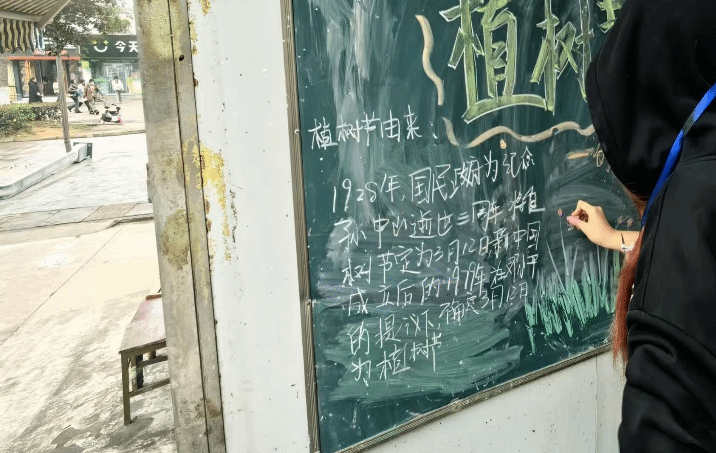 今天
植树
植树节由来:
1928年,国民政府为纪念
孙中山逝世三周年,将植
树节定为3月12日.新中国
成立后的1979年,在邓小平
的提议下,确定3月12日
为植树节